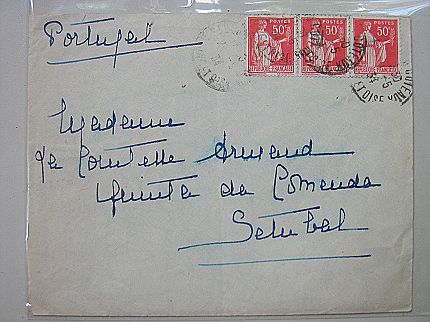 Portugal
POSTES POSTES POSTES
50c 50c 50c
REPUBLIQUE FRANÇAISE REPUBLIQUE FRANÇAISE REPUBLIQUE FRANÇAISE
Madame
La Comtesse Armand
Quinta da Comenda
Setubal